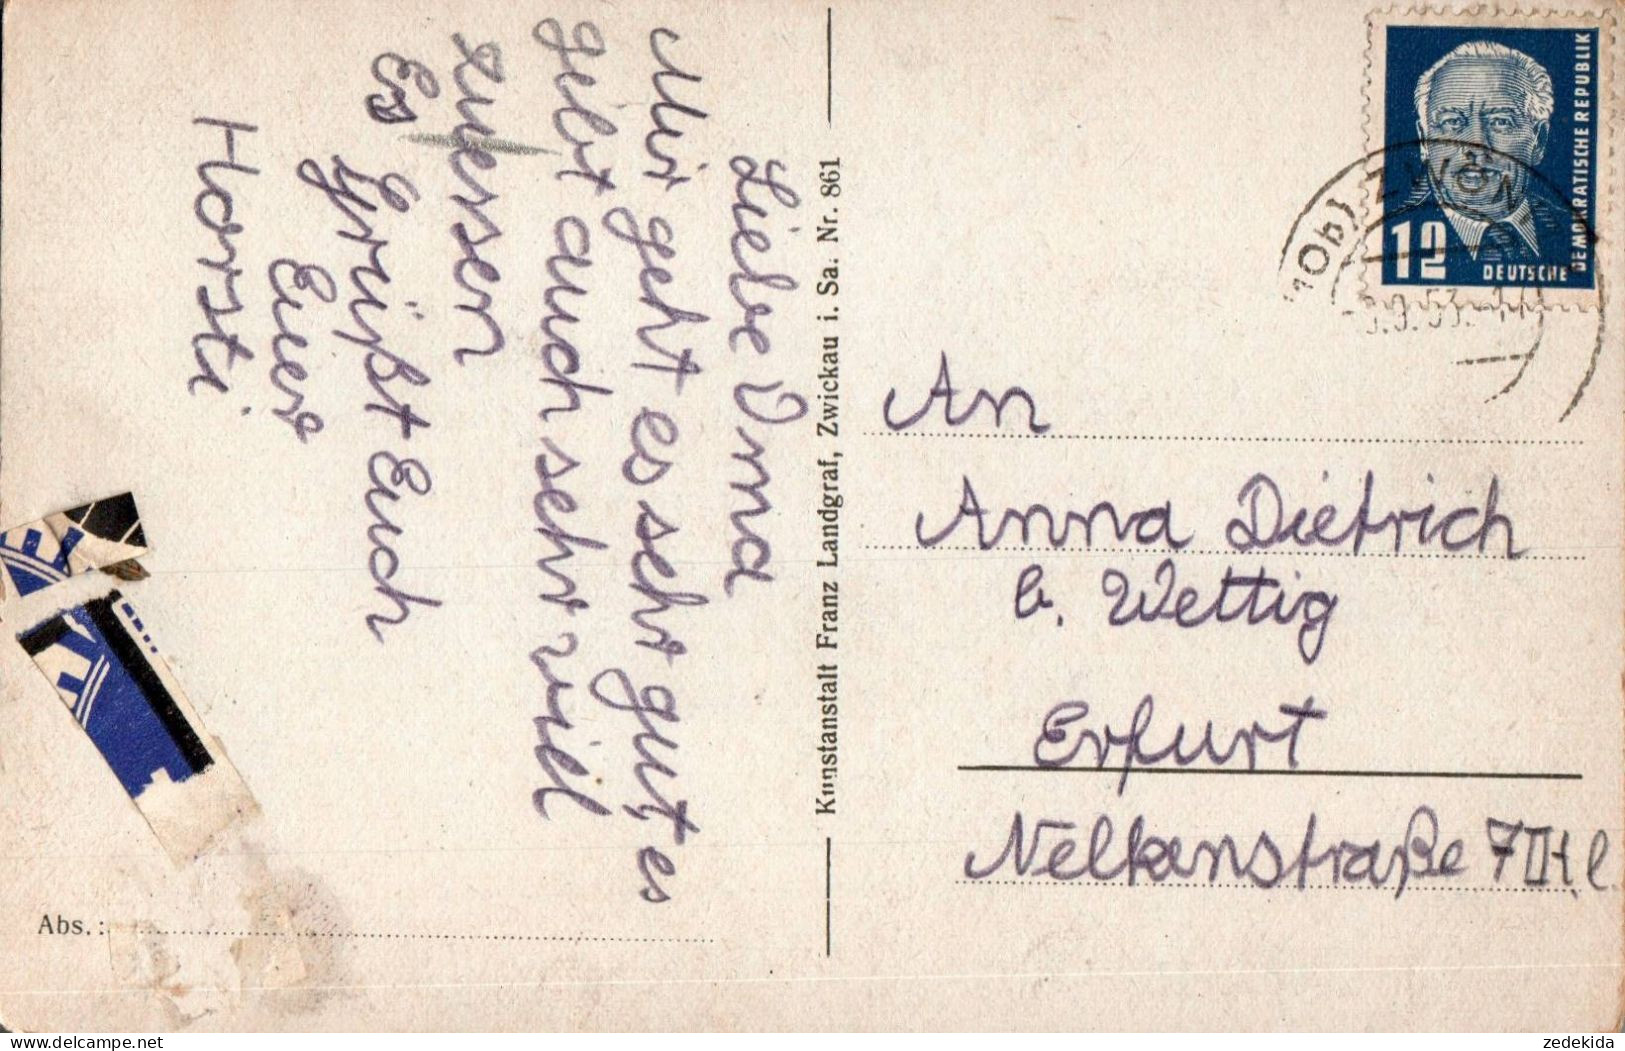 Liebe Oma
Mir geht es sehr gut, es
gibt auch sehr viel
zuessen
Es
Grüßt Euch
Euer
Horsti
Kunstanstalt Franz Landgraf, Zwickau i. Sa. Nr. 861
12
DEUTSCHE DEMOKRATISCHE REPUBLIK
(10b) ZWÖN
An
Anna Dietrich
b. Wettig
Erfurt
Nelkenstraße 7 III l
Abs.:
zedekida